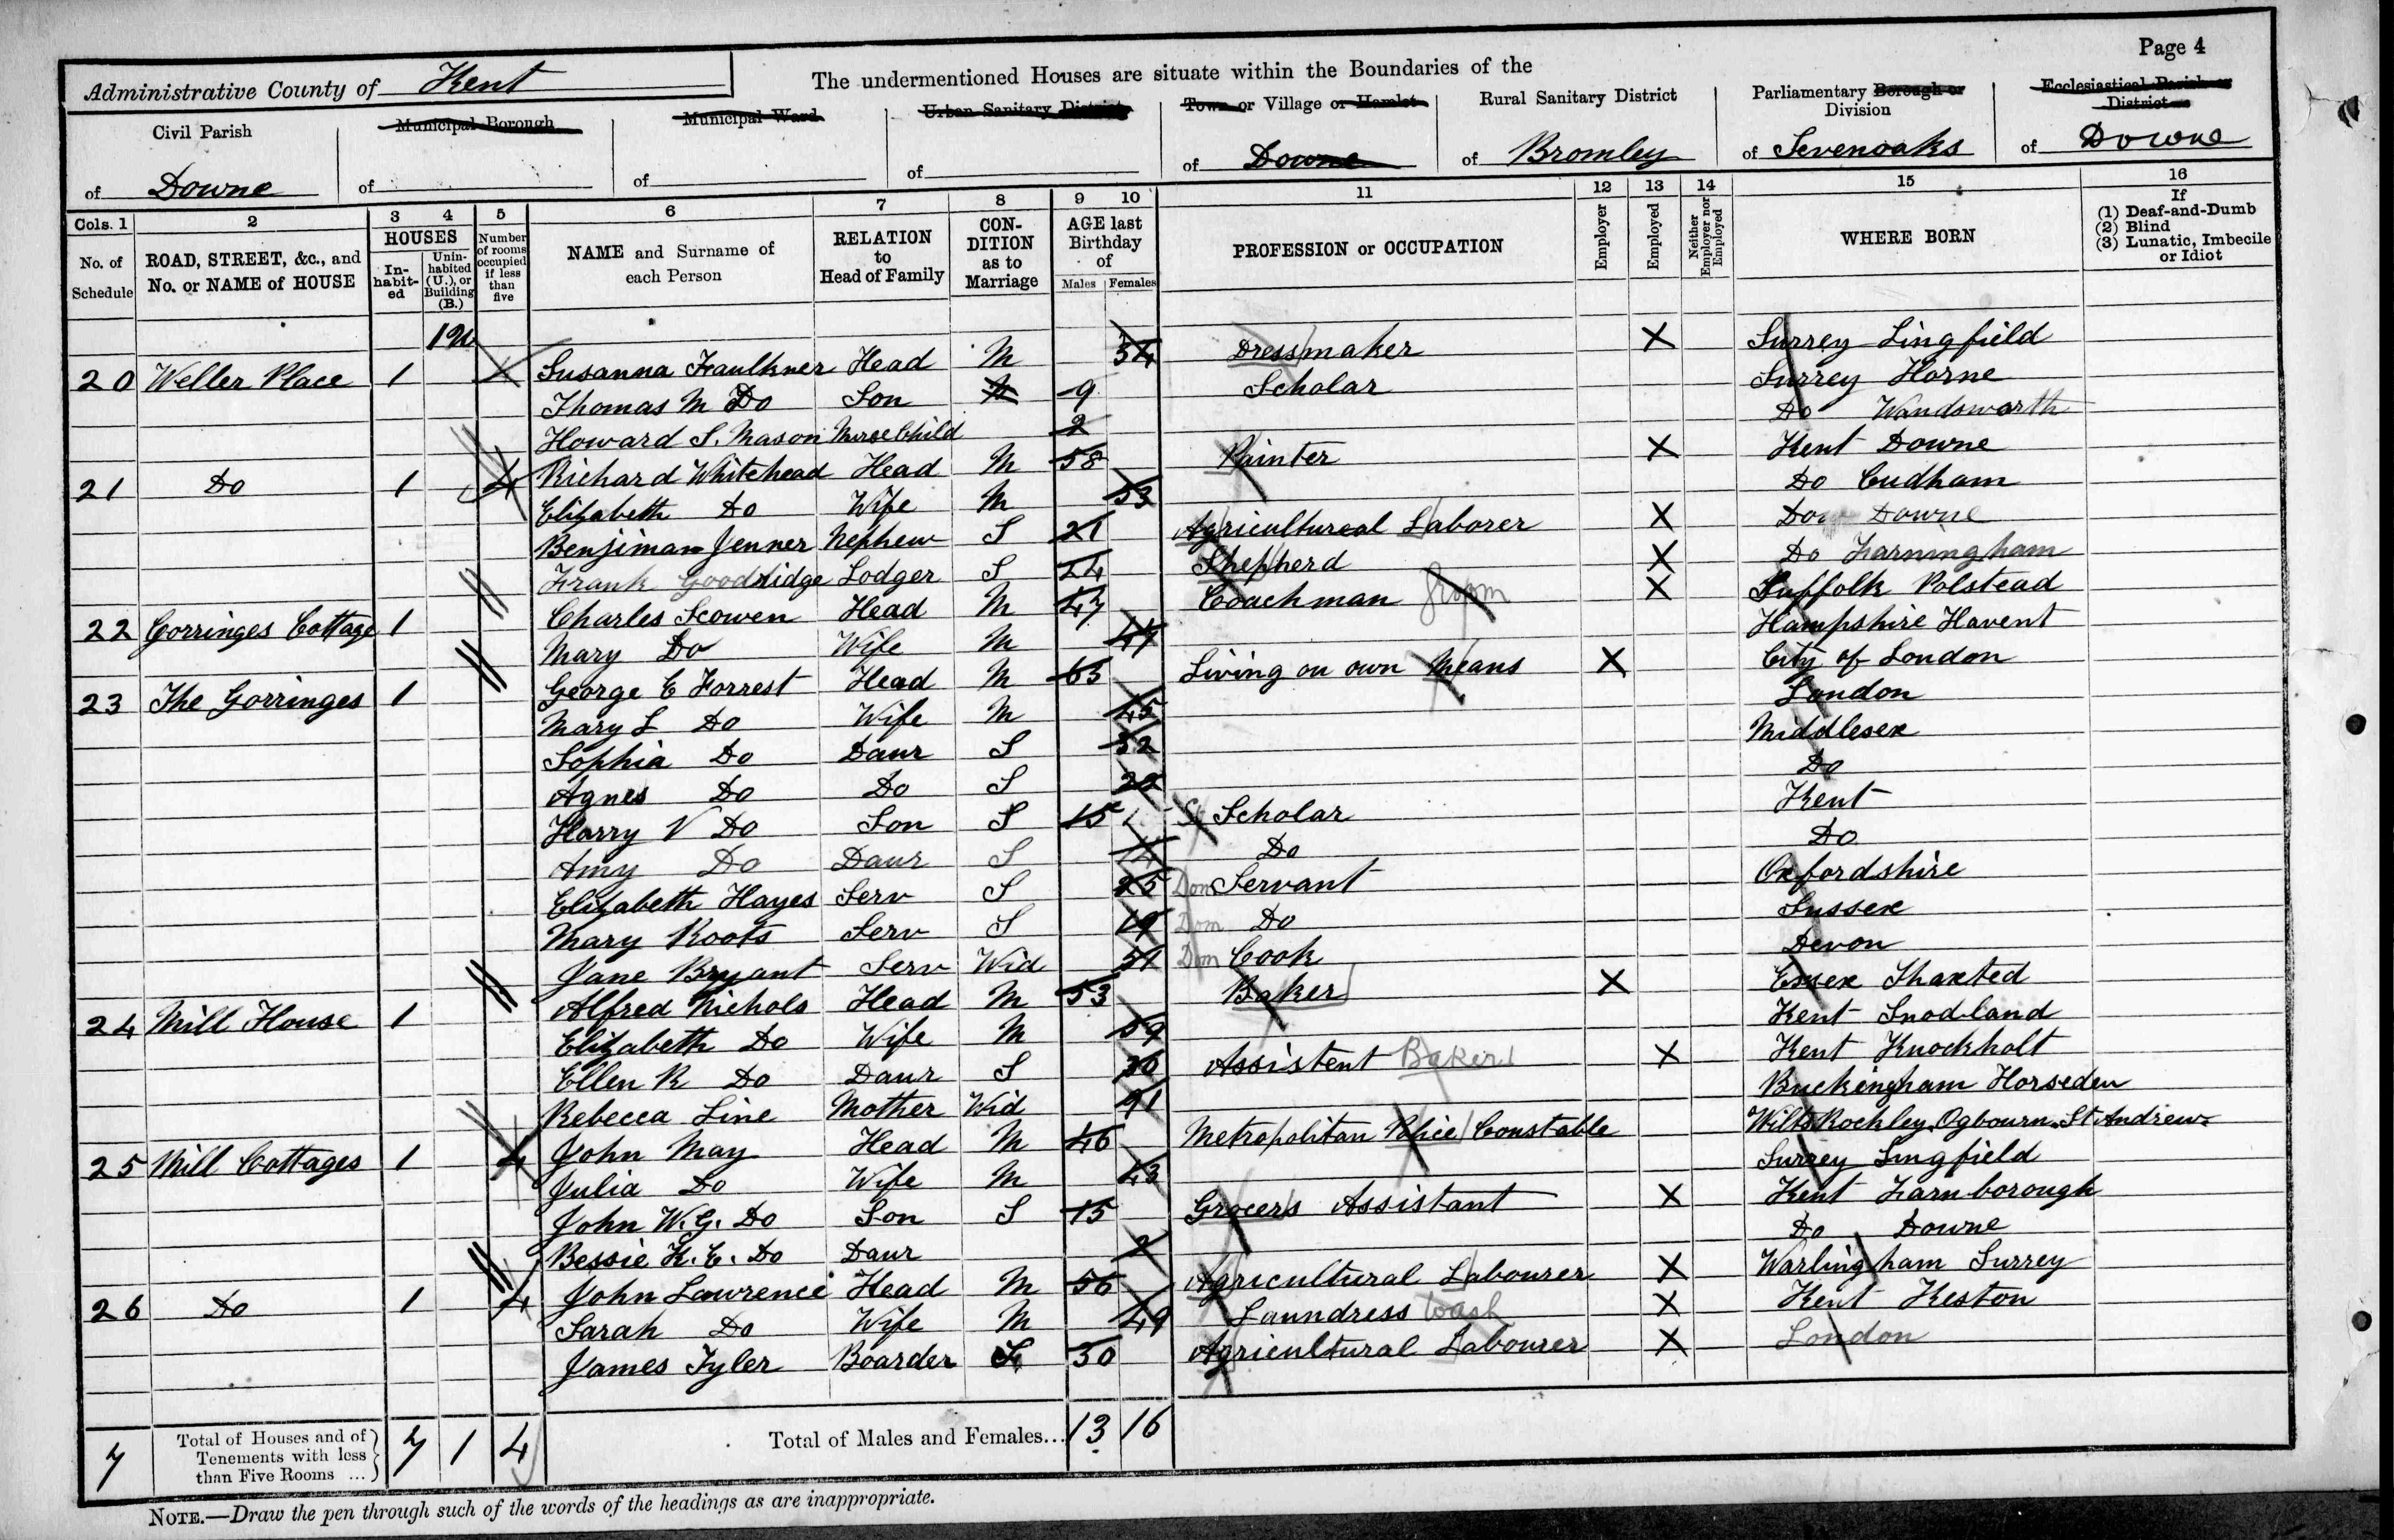 Page 4
Administrative County of Kent
The undermentioned Houses are situate within the Boundaries of the
Civil Parish of Downe
Municipal Borough of
Municipal Ward of
Urban Sanitary District of
Town or Village or Hamlet of Downe
Rural Sanitary District of Bromley
Parliamentary Borough or Division of Sevenoaks
Ecclesiastical Parish or District of Downe
Cols. 1 2 3 4 5 6 7 8 9 10 11 12 13 14 15 16
No. of Schedule
ROAD, STREET, &c., and No. or NAME of HOUSE
HOUSES
Inhabited
Uninhabited (U.), or Building (B.)
Number of rooms occupied if less than five
NAME and Surname of each Person
RELATION to Head of Family
CONDITION as to Marriage
AGE last Birthday of
Males Females
PROFESSION or OCCUPATION
Employer
Employed
Neither Employer nor Employed
WHERE BORN
If
(1) Deaf-and-Dumb
(2) Blind
(3) Lunatic, Imbecile or Idiot
1 U
20 Weller Place 1 Susanna Faulkner Head M 34 Dressmaker X Surrey Lingfield
Thomas M Do Son 9 Scholar Surrey Horne
Howard S. Mason Nurse Child 2 Do Wandsworth
21 Do 1 4 Richard Whitehead Head M 58 Painter X Kent Downe
Elizabeth Do Wife M 53 Do Cudham
Benjiman Jenner Nephew S 21 Agricultureal Laborer X Do Downe
Frank Goodridge Lodger S 24 Shepherd X Do Farningham
22 Gorringes Cottage 1 Charles Scowen Head M 47 Coachman Groom X Suffolk Polstead
Mary Do Wife M 47 Hampshire Havent
23 The Gorringes 1 George E Forrest Head M 63 Living on own Means X City of London
Mary L Do Wife M 45 London
Sophia Do Daur S 32 Middlesex
Agnes Do Do S Do
Harry V Do Son S 15 Scholar Kent
Amy Do Daur S 14 Do Do
Elizabeth Hayes Serv S 25 Dom Servant Oxfordshire
Mary Roots Serv S 19 Dom Do Sussex
Jane Bryant Serv Wid 51 Dom Cook Devon
24 Mill House 1 Alfred Nichols Head M 53 Baker X Essex Thaxted
Elizabeth Do Wife M 59 Kent Snodland
Ellen R Do Daur S Assistent Baker X Kent Knockholt
Rebecca Line Mother Wid 91 Buckingham Horseden
25 Mill Cottages 1 4 John May Head M 46 Metropolitan Police Constable Wilts Rockley, Ogbourn St Andrews
Julia Do Wife M 43 Surrey Lingfield
John W. G. Do Son S 15 Grocers Assistant X Kent Farnborough
Bessie K. E. Do Daur 2 Do Downe
26 Do 1 4 John Lawrence Head M 56 Agricultural Labourer X Warlingham Surrey
Sarah Do Wife M 49 Laundress Wash X Kent Keston
James Tyler Boarder S 30 Agricultural Labourer X London
7 Total of Houses and of Tenements with less than Five Rooms ... 7 1 4 Total of Males and Females... 13 16
NOTE.—Draw the pen through such of the words of the headings as are inappropriate.